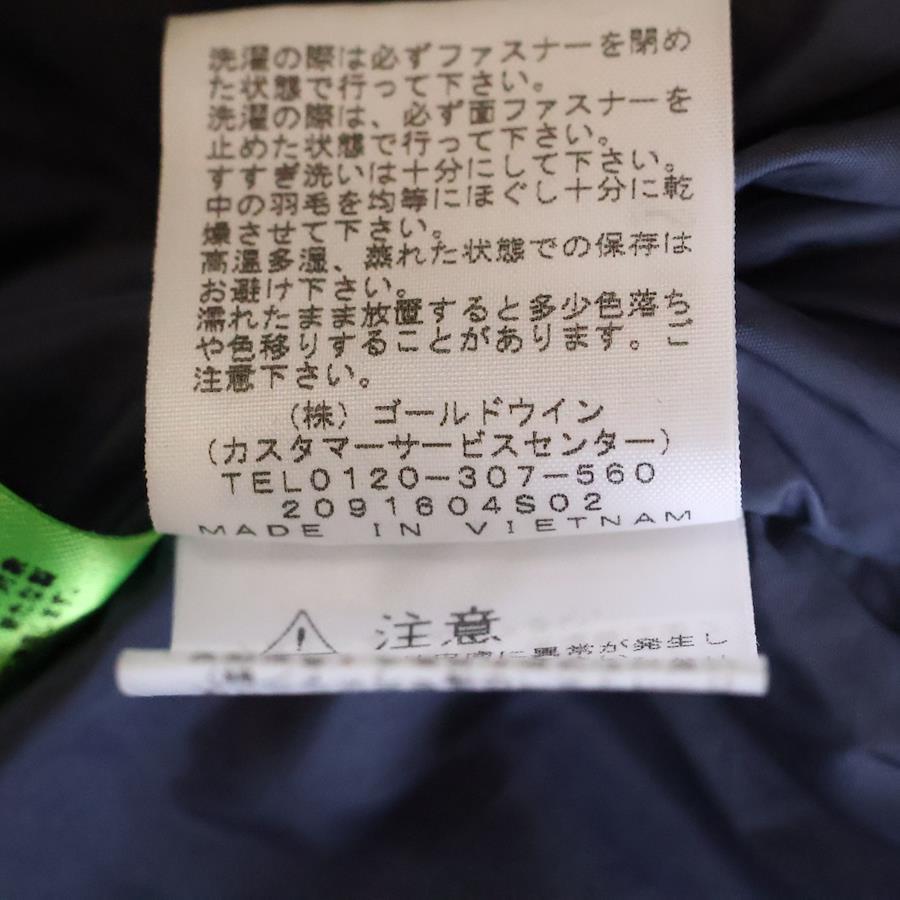 洗濯の際は必ずファスナーを閉め
た状態で行って下さい。
洗濯の際は、必ず面ファスナーを
止めた状態で行って下さい。
すすぎ洗いは十分にして下さい。
中の羽毛を均等にほぐし十分に乾
燥させて下さい。
高温多湿、蒸れた状態での保存は
お避け下さい。
濡れたまま放置すると多少色落ち
や色移りすることがあります。ご
注意下さい。
(株)ゴールドウイン
(カスタマーサービスセンター)
TEL0120-307-560
2091604S02
MADE IN VIETNAM
注意
に異常が発生し